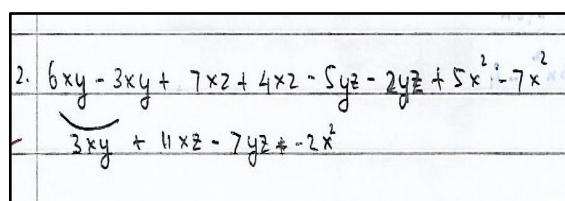 2. 6xy - 3xy + 7xz + 4xz - 5yz - 2yz + 5x² - 7x²
3xy + 11xz - 7yz + -2x²